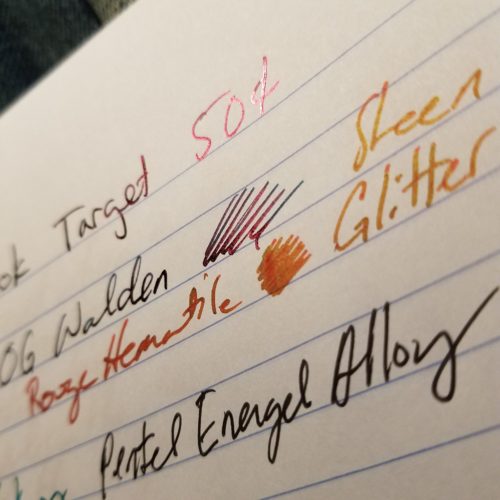 ok Target 50¢ Sheen
OG Walden Glitter
Rouge Hematite
Pentel Energel Alloy